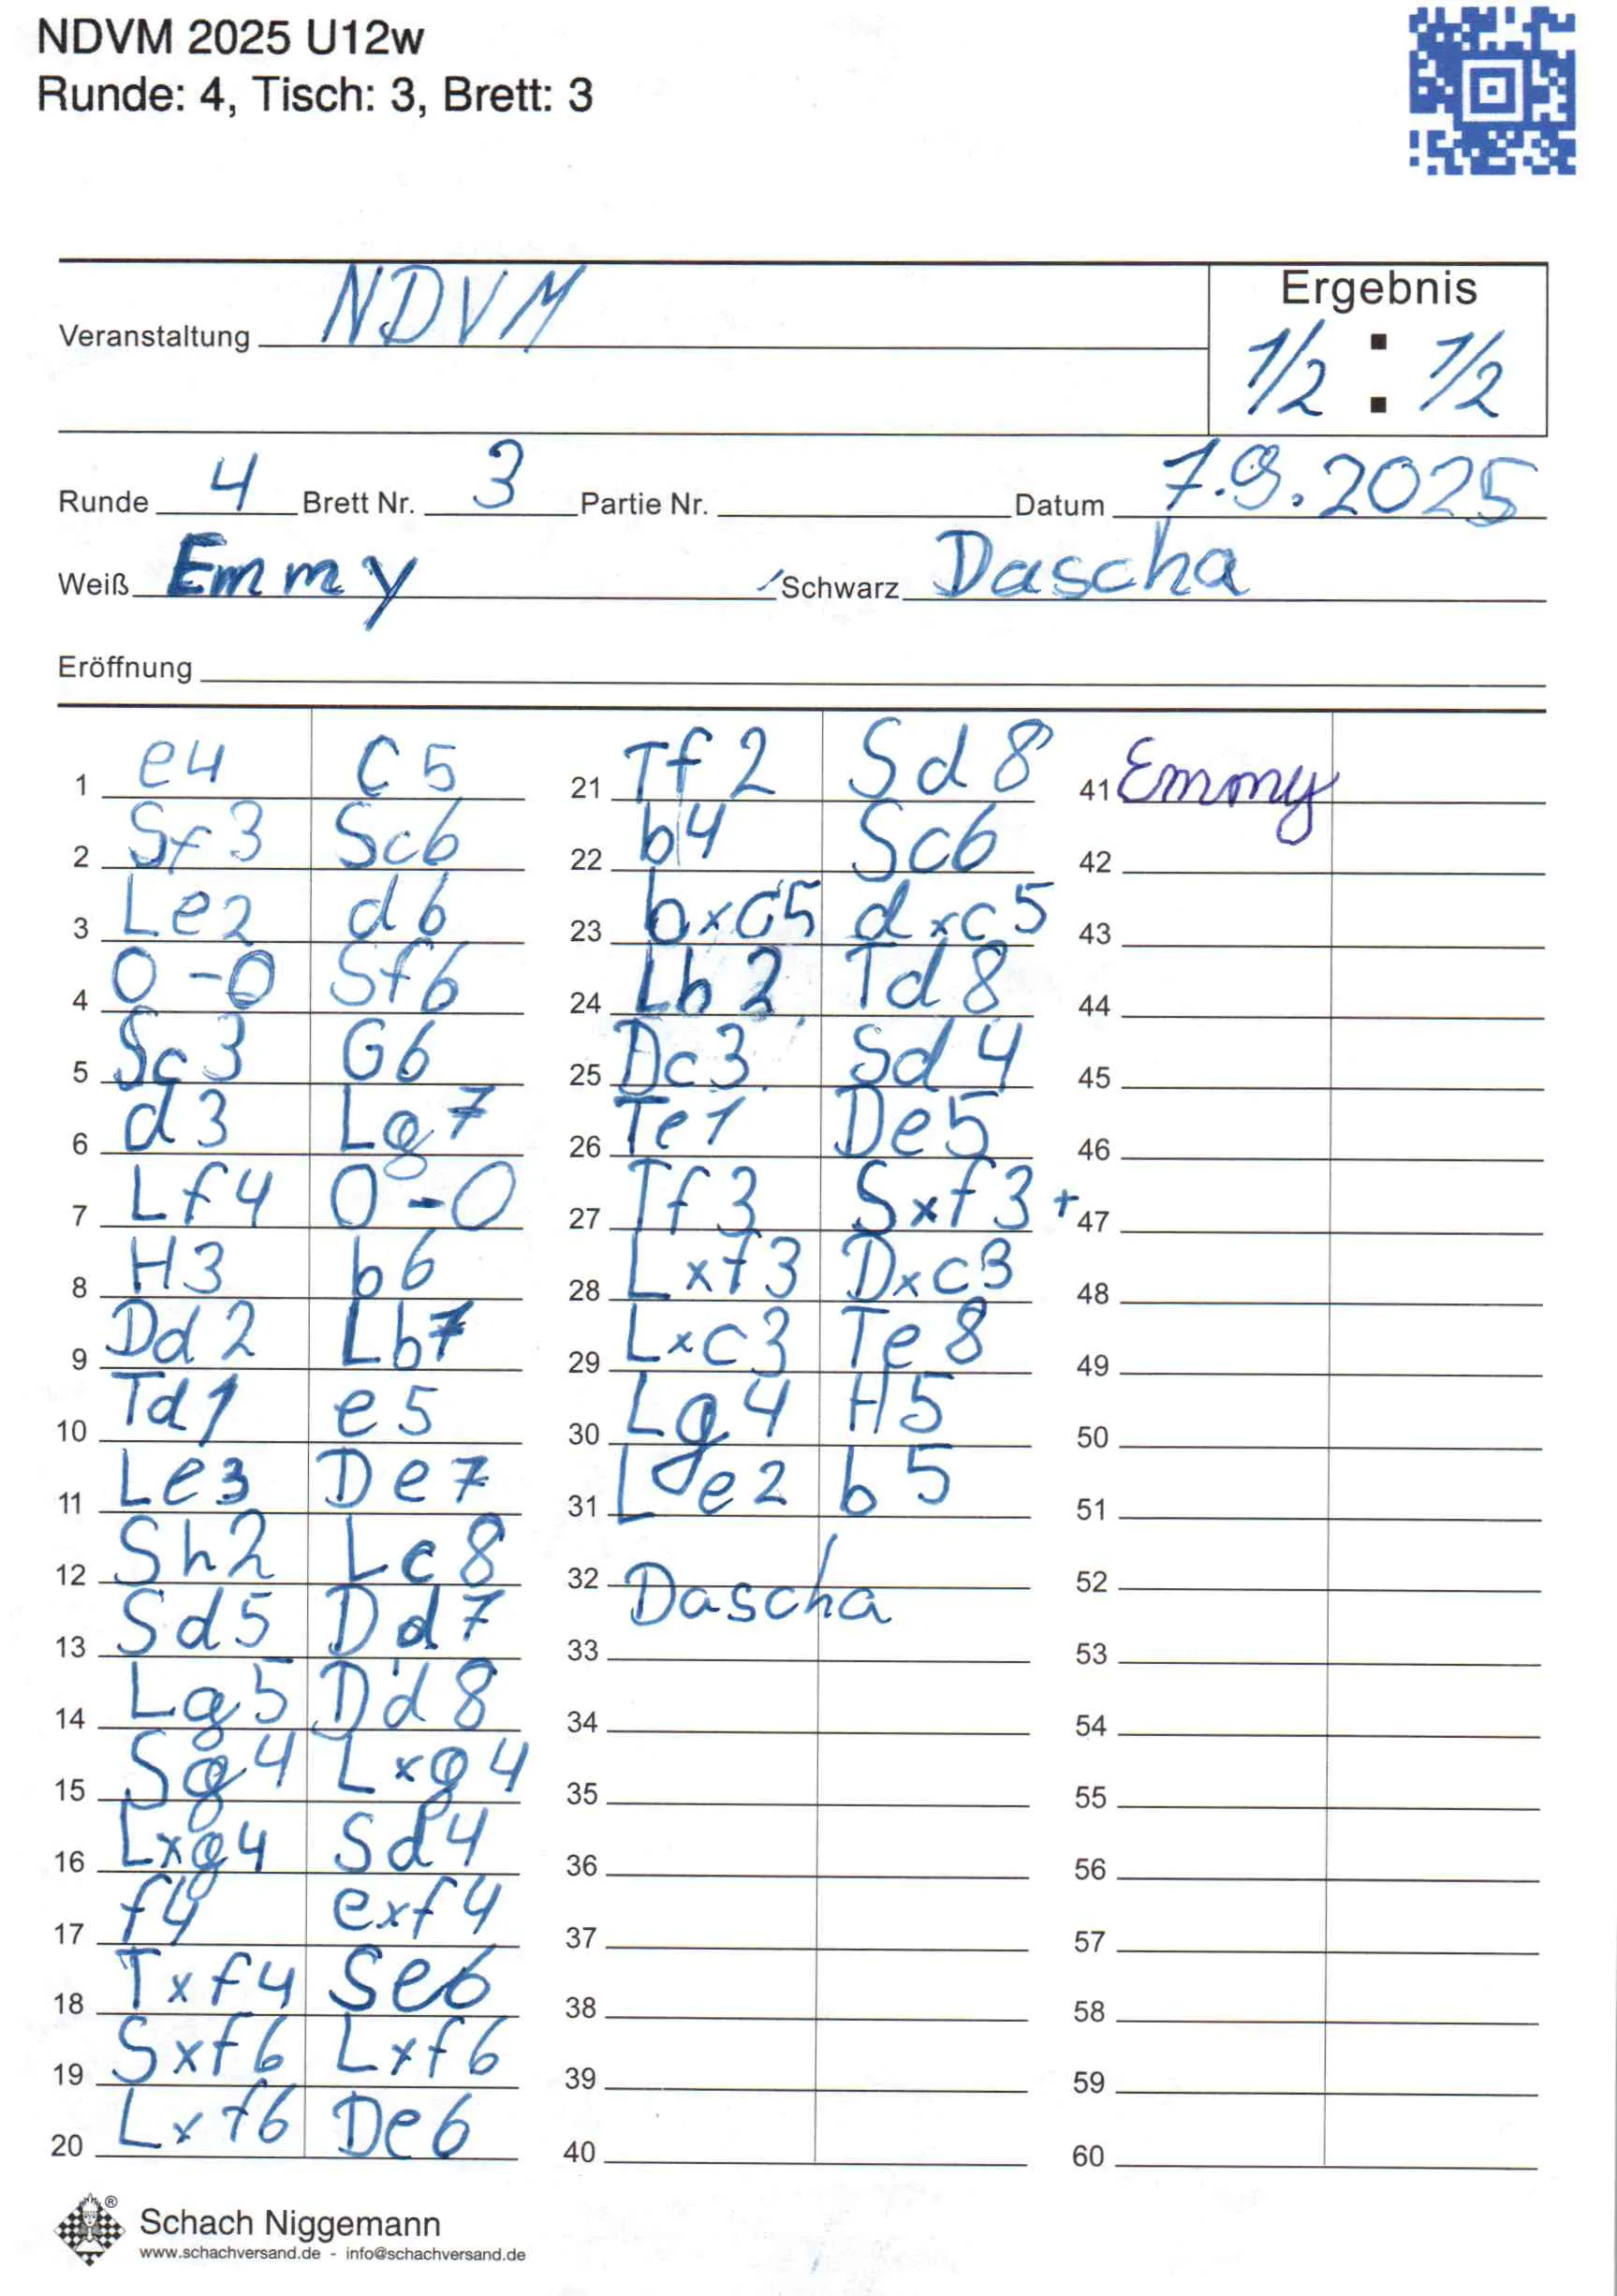 NDVM 2025 U12w
Runde: 4, Tisch: 3, Brett: 3
Veranstaltung NDVM
Ergebnis
1/2 : 1/2
Runde 4 Brett Nr. 3 Partie Nr. Datum 7.9.2025
Weiß Emmy Schwarz Dascha
Eröffnung
1 e4 C5
2 Sf3 Sc6
3 Le2 d6
4 0-0 Sf6
5 Sc3 G6
6 d3 Lg7
7 Lf4 0-0
8 H3 b6
9 Dd2 Lb7
10 Td1 e5
11 Le3 De7
12 Sh2 Lc8
13 Sd5 Dd7
14 Lg5 Dd8
15 Sg4 Lxg4
16 Lxg4 Sd4
17 f4 exf4
18 Txf4 Se6
19 Sxf6 Lxf6
20 Lxf6 De6
21 Tf2 Sd8
22 b4 Sc6
23 bxc5 dxc5
24 Lb2 Td8
25 Dc3 Sd4
26 Te1 De5
27 Tf3 Sxf3+
28 Lxf3 Dxc3
29 Lxc3 Te8
30 Lg4 H5
31 Le2 b5
32 Dascha
33
34
35
36
37
38
39
40
41 Emmy
42
43
44
45
46
47
48
49
50
51
52
53
54
55
56
57
58
59
60
Schach Niggemann
www.schachversand.de - info@schachversand.de